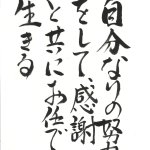 自分なりの努力
をして、感謝
と共にお任せで
生きる